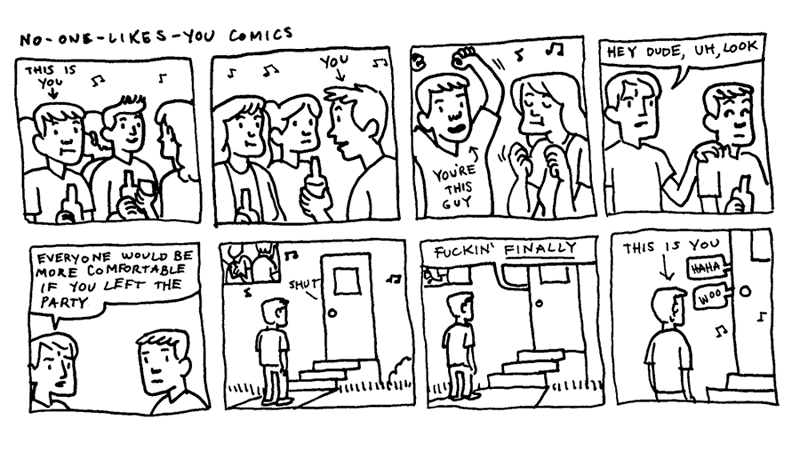 NO-ONE-LIKES-YOU COMICS
THIS IS
YOU
YOU
YOU'RE
THIS
GUY
HEY DUDE, UH, LOOK
EVERYONE WOULD BE
MORE COMFORTABLE
IF YOU LEFT THE
PARTY
SHUT
FUCKIN' FINALLY
THIS IS YOU
HAHA
WOO